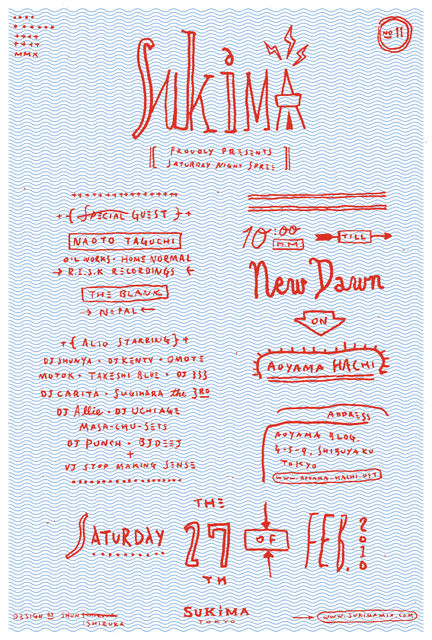 MMX
NO 11
SukiMA
PROUDLY PRESENTS
SATURDAY NIGHT SPREE
SPECIAL GUEST
NAOTO TAGUCHI
OIL WORKS • HOME NORMAL
R.I.S.K RECORDINGS
THE BLANK
NEPAL
{ALSO STARRING}
DJ SHUNYA • DJ KENTY • OMOTE
MOTOK • TAKESHI BLUE • DJ 333
DJ CARITA • SUGIHARA the 3RD
DJ Allie • DJ UCHIAGE
MASA-CHU-SETS
DJ PUNCH • BJDEEJ
+
VJ STOP MAKING SENSE
10:00
P.M
TILL
New Dawn
ON
AOYAMA HACHI
ADDRESS
AOYAMA BLDG.
4-5-9, SHIBUYAKU
TOKYO
WWW.AOYAMA-HACHI.NET
SATURDAY
THE
27
TH
OF
FEB.
2010
DESIGN BY SHUN
ISHIZUKA
SUKIMA
TOKYO
WWW.SUKIMAMIX.COM